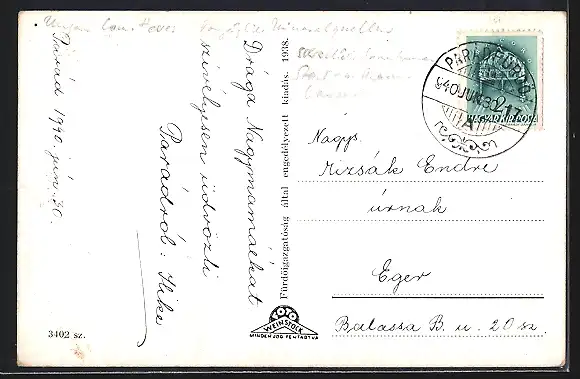 Parád 1940 jún. 30.
Drága Nagymamáékat
szívélyesen üdvözli
Parádról: Ilike
3402 sz.
Fürdőigazgatóság által engedélyezett kiadás. 1938.
WEINSTOCK
MINDEN JOG FENTARTVA
PARÁDFÜRDŐ
940 JUN 30 17
A
MAGYAR KIR. POSTA
2
Nagys.
Mizsák Endre
úrnak
Eger
Balassa B. u. 20 sz.